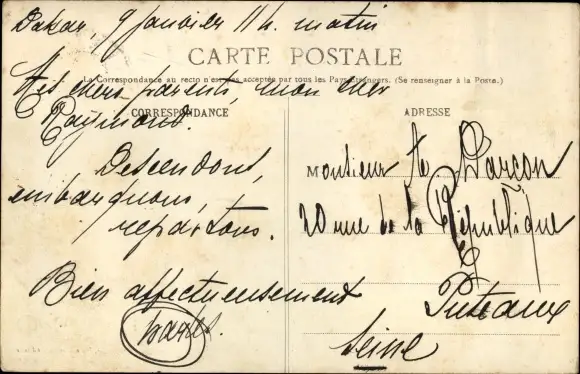 Dakar, 9 Janvier 11 h. matin
CARTE POSTALE
La Correspondance au recto n'est pas acceptée par tous les Pays Etrangers. (Se renseigner à la Poste.)
Mes chers parents, mon cher
Raymond.
CORRESPONDANCE
Descendons,
embarquons,
repartons.
Bien affectueusement
ADRESSE
Monsieur
20 rue de la République
Puteaux
Seine